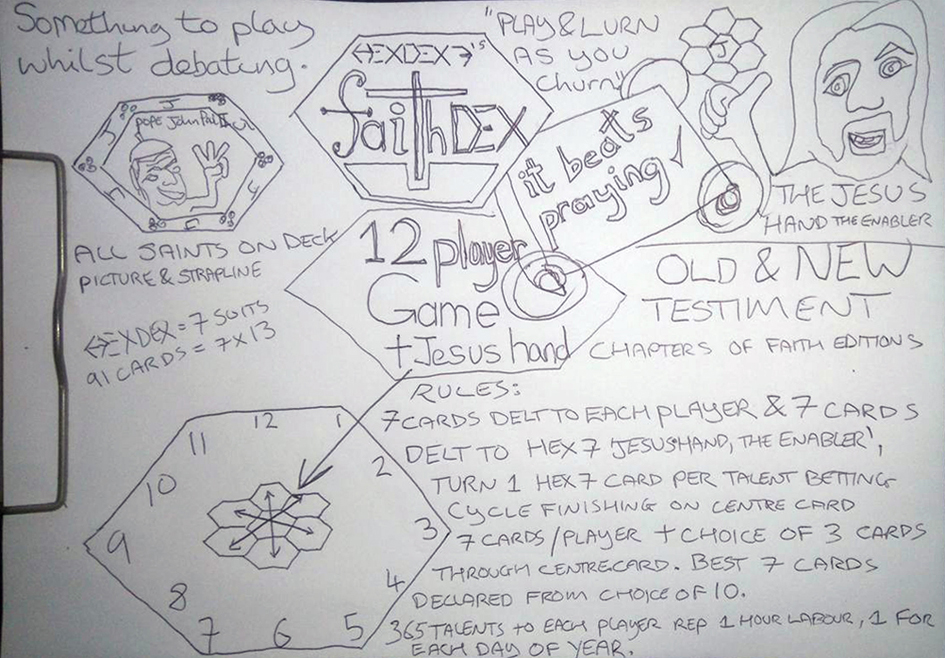 Something to play
whilst debating.
HEXDEX 7's
faithDEX
"PLAY & LURN
AS YOU
Churn"
J
pope John Paul II
J
J
J
J
J
ALL SAINTS ON DECK
PICTURE & STRAPLINE
it beats
praying
THE JESUS
HAND THE ENABLER
HEXDEX = 7 SUITS
91 CARDS = 7 X 13
12 player
Game
+ Jesus hand
OLD & NEW
TESTIMENT
CHAPTERS OF FAITH EDITIONS
RULES:
7 CARDS DELT TO EACH PLAYER & 7 CARDS
DELT TO HEX 7 'JESUS HAND, THE ENABLER',
TURN 1 HEX 7 CARD PER TALENT BETTING
CYCLE FINISHING ON CENTRE CARD
7 CARDS/PLAYER + CHOICE OF 3 CARDS
THROUGH CENTRECARD. BEST 7 CARDS
DECLARED FROM CHOICE OF 10.
365 TALENTS TO EACH PLAYER REP 1 HOUR LABOUR, 1 FOR
EACH DAY OF YEAR.
12
1
2
3
4
5
6
7
8
9
10
11